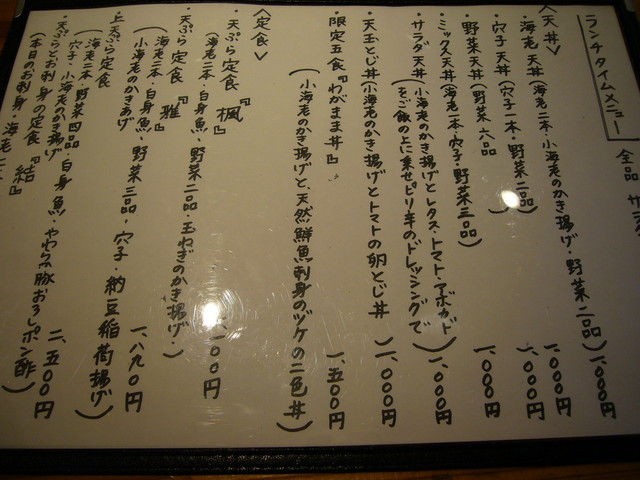 ランチタイムメニュー
全品 サ
〈天丼〉
・海老天丼(海老二本・小海老のかき揚げ・野菜二品)一、〇〇〇円
・穴子天丼(穴子一本・野菜二品) 一、〇〇〇円
・野菜天丼(野菜六品) 一、〇〇〇円
・ミックス天丼(海老一本・穴子・野菜三品) 一、〇〇〇円
・サラダ天丼(小海老のかき揚げとレタス・トマト・アボカド
をご飯の上に乗せピリ辛のドレッシングで) 一、〇〇〇円
・天玉とじ丼(小海老のかき揚げとトマトの卵とじ丼) 一、〇〇〇円
・限定五食『わがまま丼』 一、五〇〇円
(小海老のかき揚げと、天然鮮魚刺身のヅケの二色丼)
〈定食〉
・天ぷら定食『楓』 一〇〇円
(海老二本・白身魚・野菜二品・玉ねぎのかき揚げ・)
・天ぷら定食『雅』 一、八九〇円
(海老二本・白身魚・野菜三品・穴子・納豆稲荷揚げ)
小海老のかきあげ
・上天ぷら定食
(海老二本・野菜四品・白身魚・やわらか豚おろしポン酢)
穴子・小海老のかき揚げ 二、五〇〇円
・天ぷらとお刺身の定食『結』
(本日のお刺身・海老二